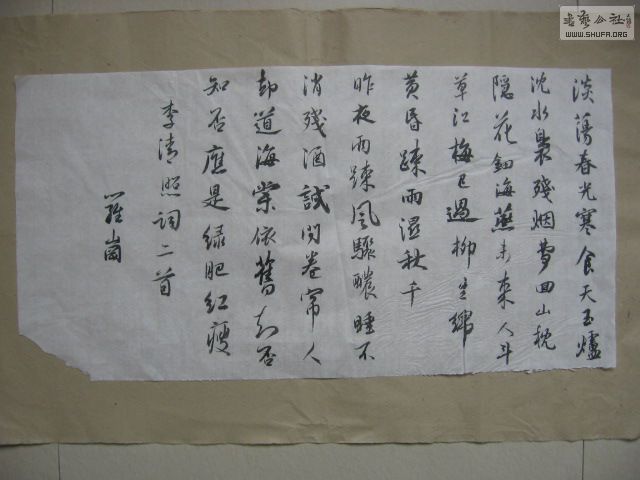 淡蕩春光寒食天玉爐
沈水裊殘烟夢回山枕
隱花鈿海燕未來人斗
草江梅已過柳生綿
黃昏疎雨濕秋千
昨夜雨疎風驟醲睡不
消殘酒試问卷帘人
却道海棠依舊知否
知否應是绿肥红瘦
李清照詞二首
羅崗
書藝公社
WWW.SHUFA.ORG